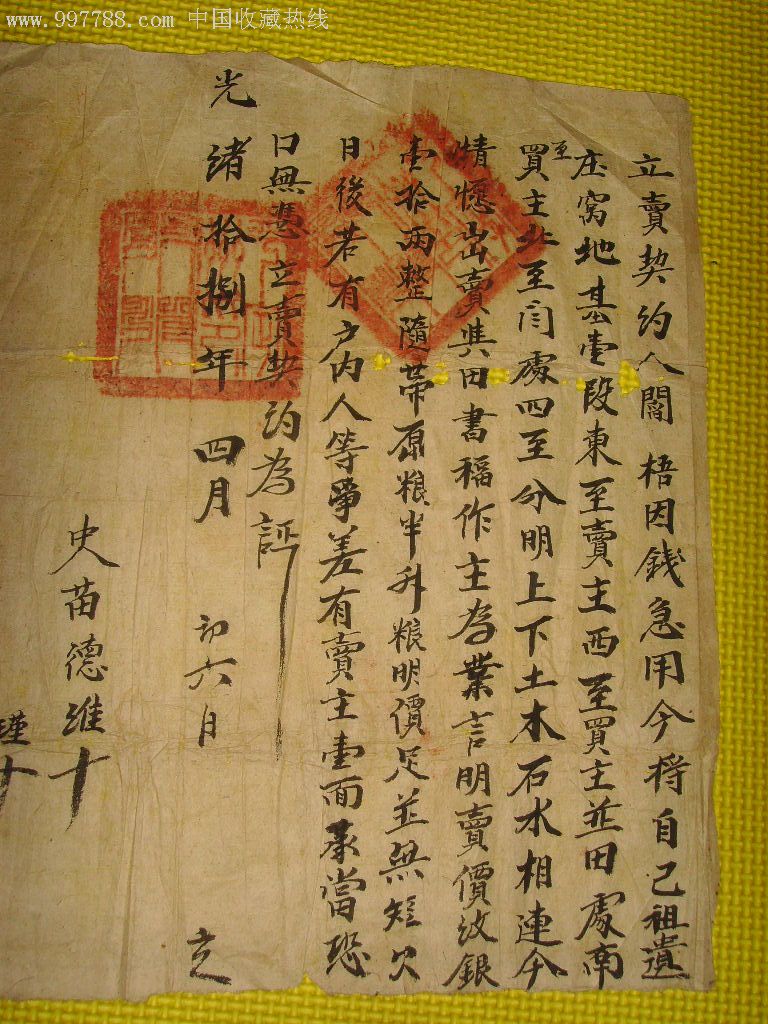 www.997788.com 中国收藏热线
立賣契約人閻 梧因錢急用今将自己祖遺
庄窩地基壹段東至賣主西至買主並田處南
至買主北至闫處四至分明上下土木石水相連今
情愿出賣與田書福作主為業言明賣價纹銀
壹拾两整隨帶原粮半升粮明價足並無短欠
日後若有户內人等爭差有賣主壹面承當恐
口無憑立賣契約為証
光緒拾捌年 四月 初六日 立
史苗德維十
瑾十